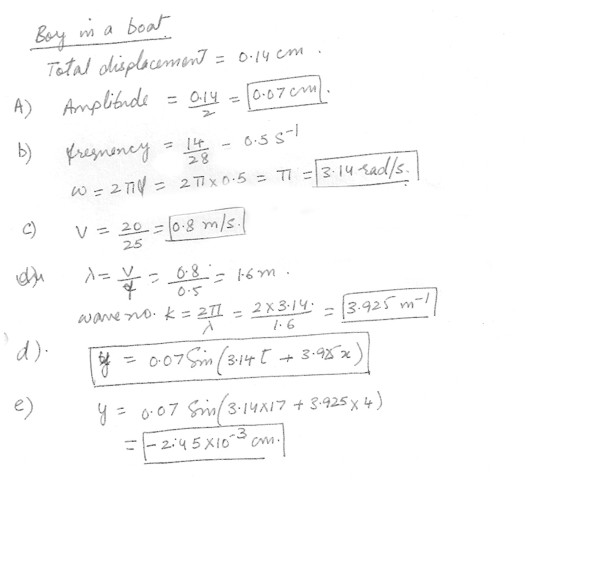 Boy in a boat.
Total displacement = 0.14 cm .
A) Amplitude = 0.14/2 = 0.07 cm.
b) frequency = 14/28 - 0.5 s⁻¹
ω = 2πf = 2π×0.5 = π = 3.14 rad/s.
c) V = 20/25 = 0.8 m/s.
λ = V/f = 0.8/0.5 = 1.6 m .
wave no. k = 2π/λ = 2×3.14/1.6 = 3.925 m⁻¹
d). y = 0.07 Sin (3.14 t + 3.925 x)
e) y = 0.07 Sin (3.14×17 + 3.925×4)
= -2.45×10⁻³ cm.